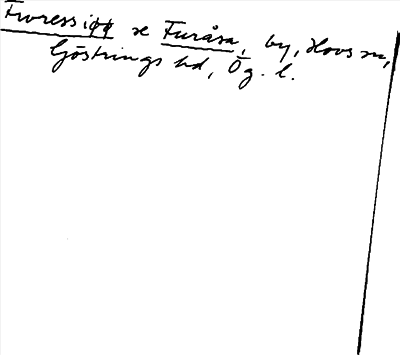 Furessiøø se Furåsa, by, Hovs sn,
Göstrings hd, Ög. l.